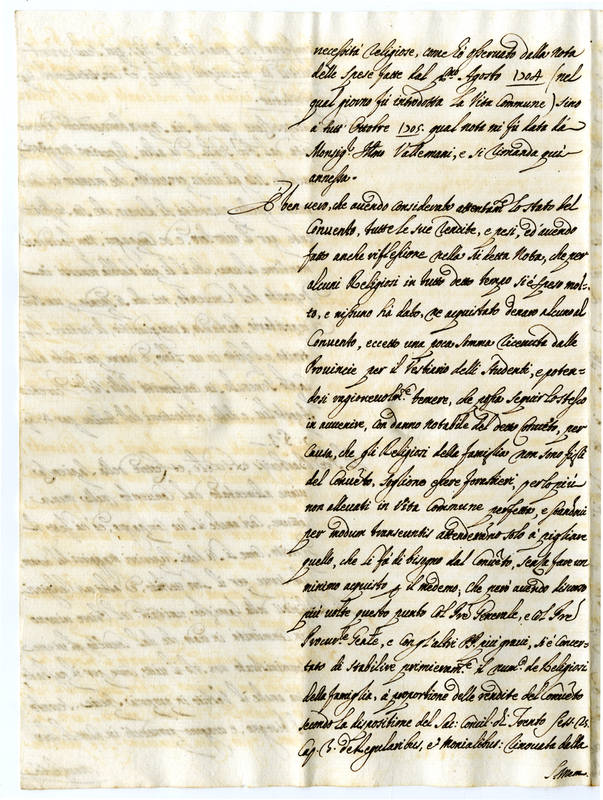 necessità Religiose, come hò osservato dalla nota
delle spese fatte dal p.mo Agosto 1704 (nel
qual giorno fù introdotta la Vita Commune) sino
à tutt' Ottobre 1705. qual nota mi fù data dà
Monsig.r Ill.mo Vallemani, e si rimanda qui
annessa.
È ben vero, che avendo considerato attentam.te lo stato del
Convento, tutte le sue rendite, e pesi, ed avendo
fatto anche riflessione nella sudetta Nota, che per
alcuni Religiosi in tutto detto tempo si è speso mol-
to, e nissuno hà dato, ne acquistato denaro alcuno al
Convento, eccetto una poca somma ricevuta dalle
Provincie per il Vestiario delli Studenti, e poten-
dosi ragionevolm.te temere, che possa seguir lo stesso
in avvenire, con danno notabile del detto Convẽto, per
causa, che gli Religiosi della famiglia non sono figli
del Convẽto, sogliono essere forastieri, per lo più
non allevati in Vita Commune perfetta, e standovi
per modum transeuntis attenderanno solo à pigliare
quello, che li fà di bisogno dal Convẽto, senza fare un
minimo acquisto p il medemo; Che però avendo discorso
più volte questo punto col Prẽ Generale, e col Prẽ
Procur.re Gen̄le, e con gl'altri PP. più gravi, si è concer-
tato di stabilire primieram.te il num.o de Religiosi
della famiglia, à proportione delle rendite del Convẽto
secondo la dispositione del Sac: Concil. di Trento Sess. 25.
Cap. 3. de Regularibus, et Monialibus: Cinovata dalla